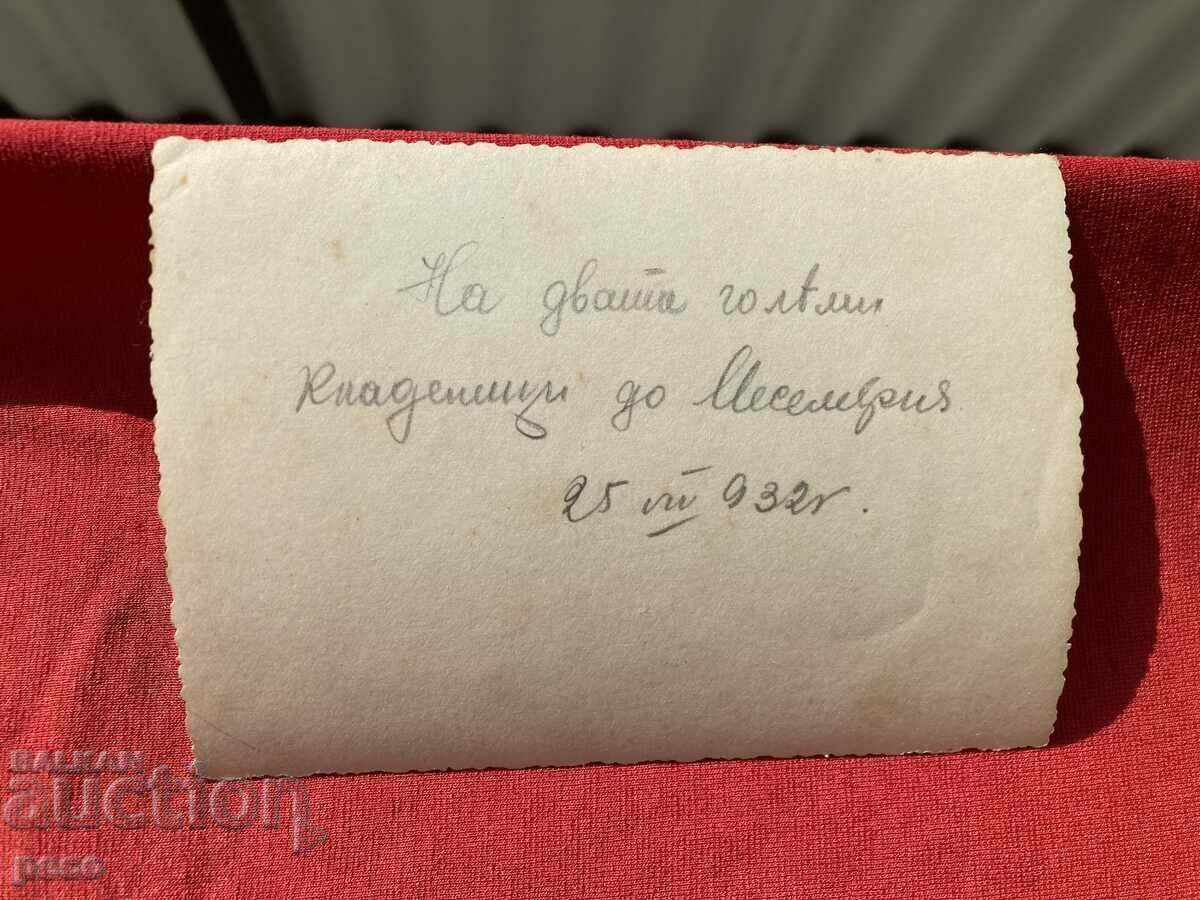 На двата голѣми
кладенци до Месемврия
25 VII 932 г.
BALKAN
auction
peco